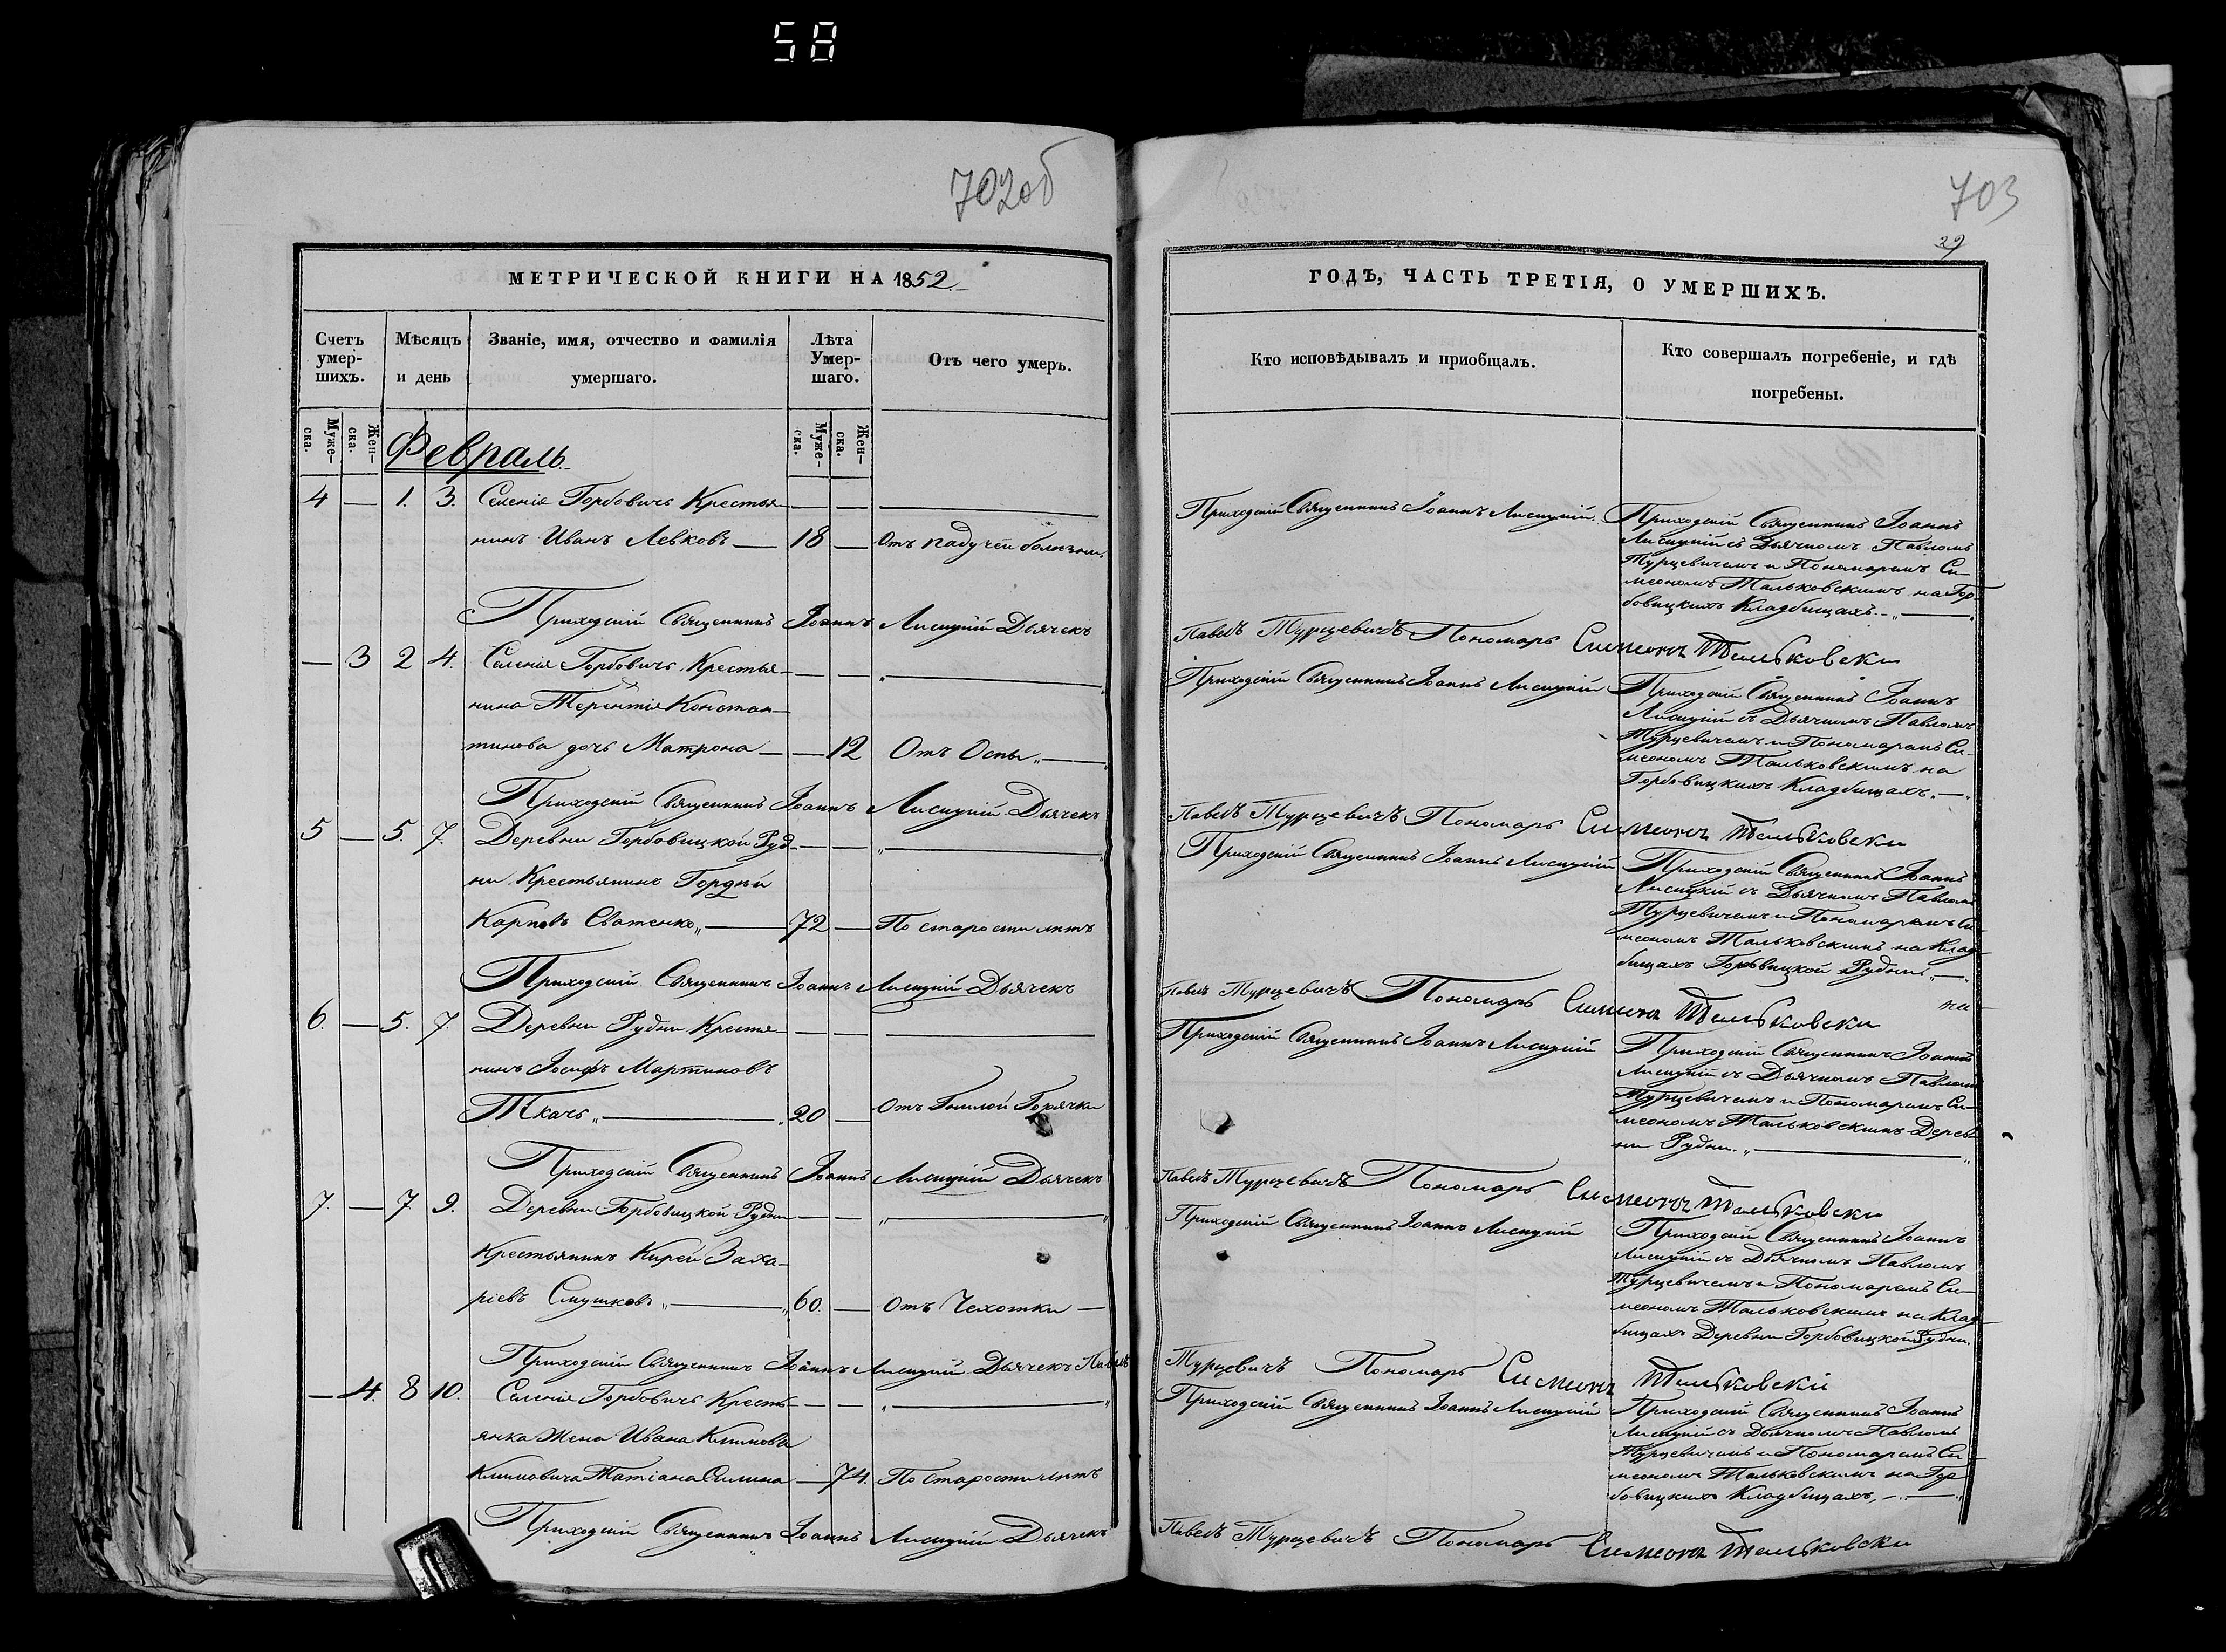 58
702об
МЕТРИЧЕСКОЙ КНИГИ НА 1852.
Счетъ умер-шихъ.
Мѣсяцъ и день
Званіе, имя, отчество и фамилія умершаго.
Лѣта Умер-шаго.
Отъ чего умеръ.
Муже-ска.
Жен-ска.
Муже-ска.
Жен-ска.
Февраль.
4 — 1. 3. Селенія Горбовичъ Крестья — —
нинъ Иванъ Левковъ — 18 — Отъ падучей болезни.
Приходскій Священникъ Іоаннъ Лисицкій Дьячекъ
— 3 2 4. Селенія Горбовичъ Крестья — —
нина Терентія Констан-
тинова дочь Матрона — — 12 Отъ Оспы „ —
Приходскій Священникъ Іоаннъ Лисицкій Дьячекъ
5 — 5. 7. Деревни Горбовицкой Руд- — —
ни Крестьянинъ Гордѣй
Карповъ Сватенко „ — 72 — По старости лѣтъ
Приходскій Священникъ Іоаннъ Лисицкій Дьячекъ
6. — 5. 7. Деревни Рудни Крестья- — —
нинъ Іосифъ Мартиновъ
Ткачъ „ — 20 — Отъ Гнилой Горячки
Приходскій Священникъ Іоаннъ Лисицкій Дьячекъ
7. — 7. 9. Деревни Горбовицкой Рудни — —
Крестьянинъ Кирей Заха-
ріевъ „ — 60. — Отъ Чехотки —
Приходскій Священникъ Іоаннъ Лисицкій Дьячекъ Павелъ
— 4. 8 10. Селенія Горбовичъ Кресть- — —
янка Жена Ивана Климова
Климовича Татіана Силина — 74. По старости лѣтъ
Приходскій Священникъ Іоаннъ Лисицкій Дьячекъ
703
29
ГОДЪ, ЧАСТЬ ТРЕТІЯ, О УМЕРШИХЪ.
Кто исповѣдывалъ и приобщалъ.
Кто совершалъ погребеніе, и гдѣ погребены.
Приходскій Священникъ Іоаннъ Лисицкій.
Приходскій Священникъ Іоаннъ
Лисицкій съ Дьячкомъ Павломъ
Турцевичемъ и Пономаремъ Си-
меономъ Тальковскимъ на Гор-
бовицкихъ Кладбищахъ. „ —
Павелъ Турцевичъ Пономарь Симеонъ Тальковски
Приходскій Священникъ Іоаннъ Лисицкій
Приходскій Священникъ Іоаннъ
Лисицкій съ Дьячкомъ Павломъ
Турцевичемъ и Пономаремъ Си-
меономъ Тальковскимъ на
Горбовицкихъ Кладбищахъ. „ —
Павелъ Турцевичъ Пономарь Симеонъ Тальковски
Приходскій Священникъ Іоаннъ Лисицкій
Приходскій Священникъ Іоаннъ
Лисицкій съ Дьячкомъ Павломъ
Турцевичемъ и Пономаремъ Си-
меономъ Тальковскимъ на Клад-
бищахъ Горбвицкой Рудни „ —
Павелъ Турцевичъ Пономарь Симеонъ Тальковски на
Приходскій Священникъ Іоаннъ Лисицкій
Приходскій Священникъ Іоаннъ
Лисицкій съ Дьячкомъ Павломъ
Турцевичемъ и Пономаремъ Си-
меономъ Тальковскимъ Дерев-
ни Рудни. „ —
Павелъ Турцевичъ Пономарь Симеонъ Тальковски
Приходскій Священникъ Іоаннъ Лисицкій
Приходскій Священникъ Іоаннъ
Лисицкій съ Дьячкомъ Павломъ
Турцевичемъ и Пономаремъ Си-
меономъ Тальковскимъ на Клад-
бищахъ Деревни Горбовицкой Рудни.
Турцевичъ Пономарь Симеонъ Тальковскій
Приходскій Священникъ Іоаннъ Лисицкій
Приходскій Священникъ Іоаннъ
Лисицкій съ Дьячкомъ Павломъ
Турцевичемъ и Пономаремъ Си-
меономъ Тальковскимъ на Гор-
бовицкихъ Кладбищахъ, —
Павелъ Турцевичъ Пономарь Симеонъ Тальковски